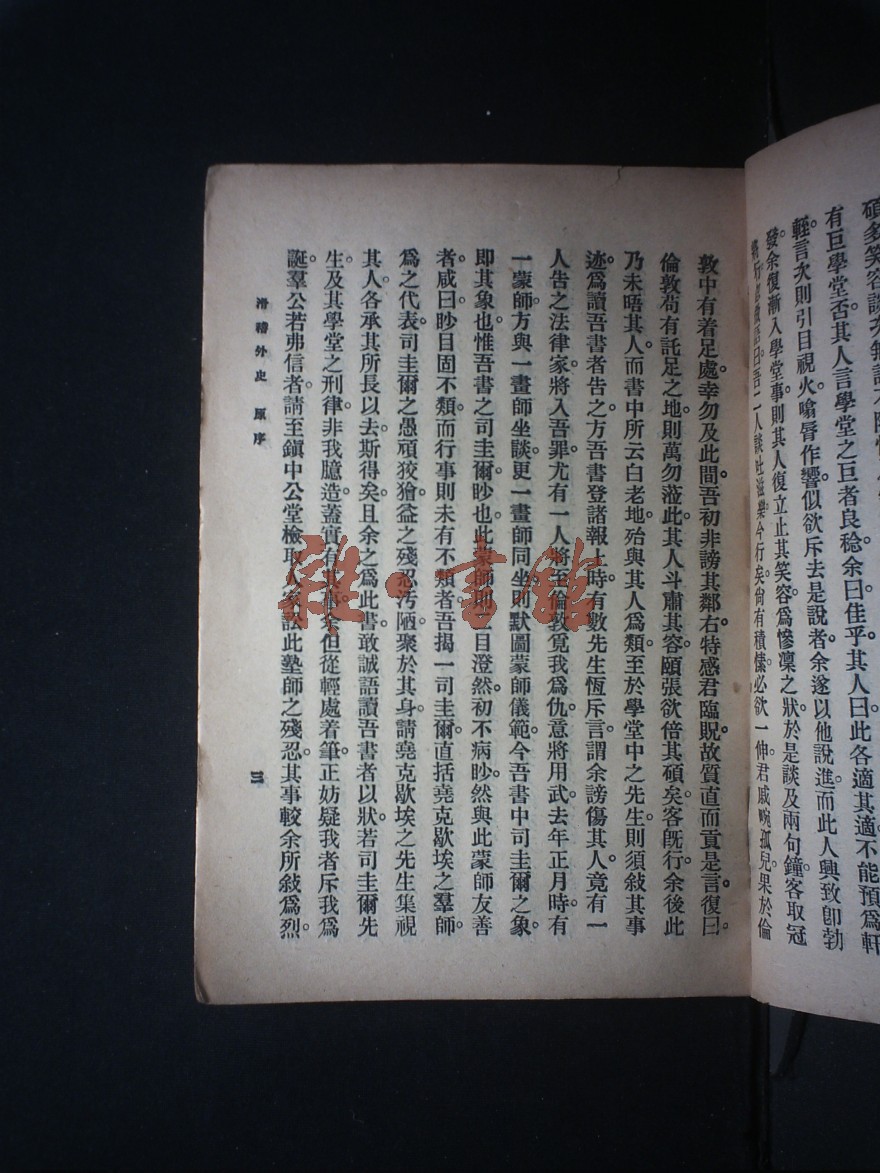 有巨學堂否。其人言學堂之巨者良稔。余曰佳乎。其人曰。此各適其適。不能預爲軒
輊。言次則引目視火。嗆脣作響。似欲斥去是說者。余遂以他說進。而此人興致卽勃
發。余復漸入學堂事。則其人復立止其笑容。爲慘凜之狀。於是談及兩句鐘。客取冠
吾二人談吐滋樂。今行矣。尙有積愫。必欲一伸。君戚畹孤兒。果於倫
敦中有着足處。幸勿及此間。吾初非謗其鄰右。特感君臨貺。故質直而貢是言。復曰
倫敦苟有託足之地。則萬勿蒞此。其人斗肅其容。頤張欲倍其碩矣。客旣行。余後此
乃未晤其人。而書中所云白老地。殆與其人爲類。至於學堂中之先生。則須敍其事
迹。爲讀吾書者告之。方吾書登諸報上時。有數先生恆斥言。謂余謗傷其人。竟有一
人告之法律家。將入吾罪。尤有一人將至倫敦覓我爲仇。意將用武。去年正月時。有
一蒙師方與一畫師坐談。更一畫師同坐。則默圖蒙師儀範。今吾書中司圭爾之象。
卽其象也。惟吾書之司圭爾眇也。此蒙師則二目澄然。初不病眇。然與此蒙師友善
者。咸曰眇目固不類。而行事則未有不類者。吾揭一司圭爾。直括堯克歇埃之羣師
爲之代表。司圭爾之愚頑狡獪。益之殘忍汚陋。聚於其身。請堯克歇埃之先生集視
其人。各承其所長以去。斯得矣。且余之爲此書。敢誠語讀吾書者以狀。若司圭爾先
生及其學堂之刑律。非我臆造。蓋實有其事。余但從輕處着筆。正妨疑我者斥我爲
誕。羣公若弗信者。請至鎭中公堂檢取人家訟此塾師之殘忍。其事較余所敍爲烈。
滑稽外史 原序
三
雜·書館